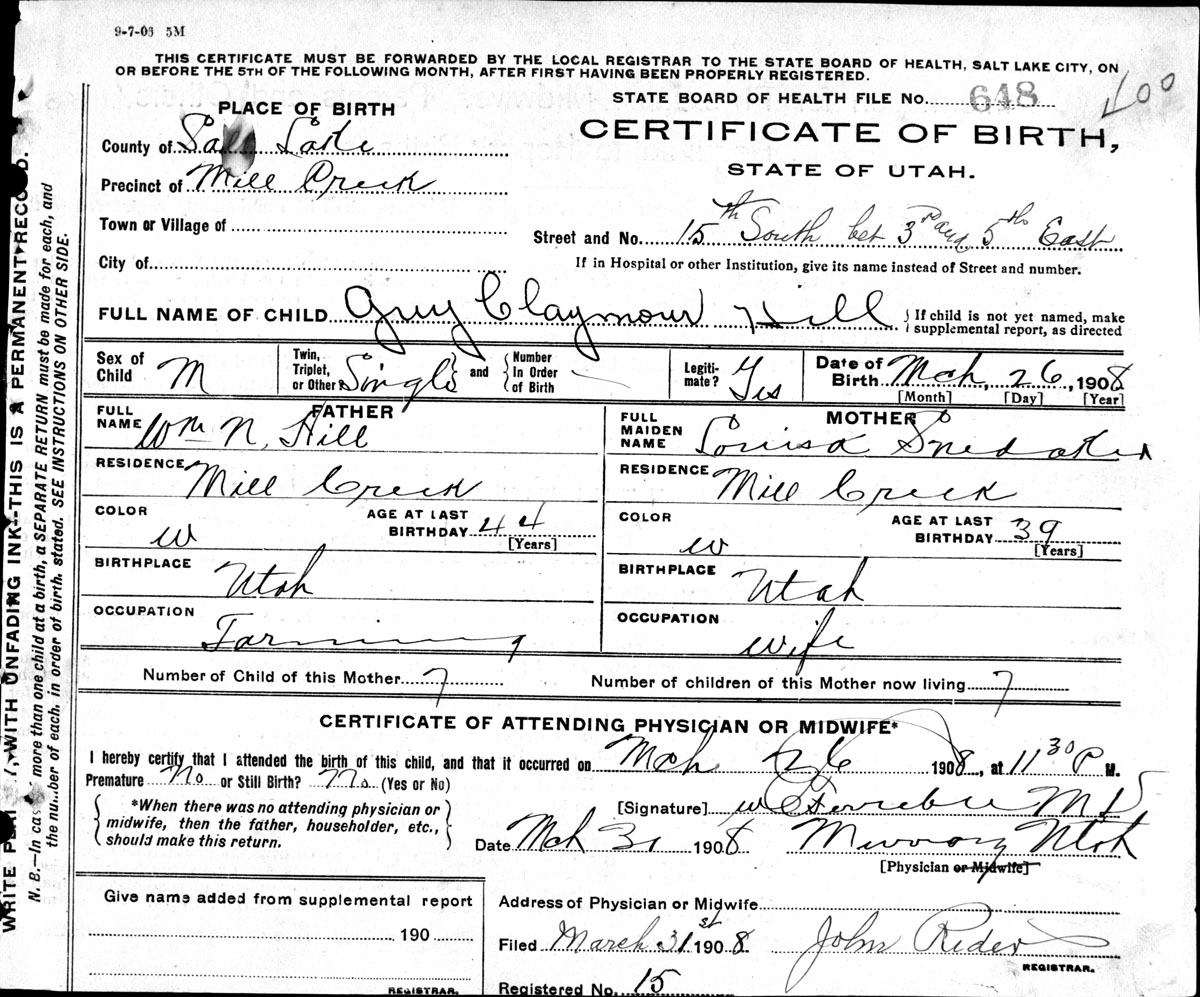 9-7-06 5M
THIS CERTIFICATE MUST BE FORWARDED BY THE LOCAL REGISTRAR TO THE STATE BOARD OF HEALTH, SALT LAKE CITY, ON
OR BEFORE THE 5TH OF THE FOLLOWING MONTH, AFTER FIRST HAVING BEEN PROPERLY REGISTERED.
STATE BOARD OF HEALTH FILE No. 648
100
PLACE OF BIRTH
CERTIFICATE OF BIRTH,
STATE OF UTAH.
County of Salt Lake
Precinct of Mill Creek
Town or Village of
Street and No. 15th South bet 3rd and 5th East
City of
If in Hospital or other Institution, give its name instead of Street and number.
FULL NAME OF CHILD Guy Claymour Hill
{ If child is not yet named, make
supplemental report, as directed
Sex of Child M
Twin, Triplet, or Other Single and Number In Order of Birth
Legiti-mate? Yes
Date of Birth Mch, 26, 1908
[Month] [Day] [Year]
FATHER
FULL NAME Wm N. Hill
MOTHER
FULL MAIDEN NAME Louisa Snedaker
RESIDENCE Mill Creek
RESIDENCE Mill Creek
COLOR W
AGE AT LAST BIRTHDAY 44
[Years]
COLOR W
AGE AT LAST BIRTHDAY 39
[Years]
BIRTHPLACE Utah
BIRTHPLACE Utah
OCCUPATION Farming
OCCUPATION Wife
Number of Child of this Mother 7
Number of children of this Mother now living 7
CERTIFICATE OF ATTENDING PHYSICIAN OR MIDWIFE*
I hereby certify that I attended the birth of this child, and that it occurred on Mch 26 1908, at 11 30 P M.
Premature No or Still Birth? No (Yes or No)
*When there was no attending physician or
midwife, then the father, householder, etc.,
should make this return.
[Signature] W C Ferrebee M D
Date Mch 31 1908 Murray Utah
[Physician or Midwife]
Give name added from supplemental report
190
REGISTRAR.
Address of Physician or Midwife
Filed March 31st 1908 John Rider
REGISTRAR.
Registered No. 15
WRITE , WITH UNFADING INK--THIS IS A PERMANENT RECORD.
N. B.—In case more than one child at a birth, a SEPARATE RETURN must be made for each, and
the number of each, in order of birth, stated. SEE INSTRUCTIONS ON OTHER SIDE.